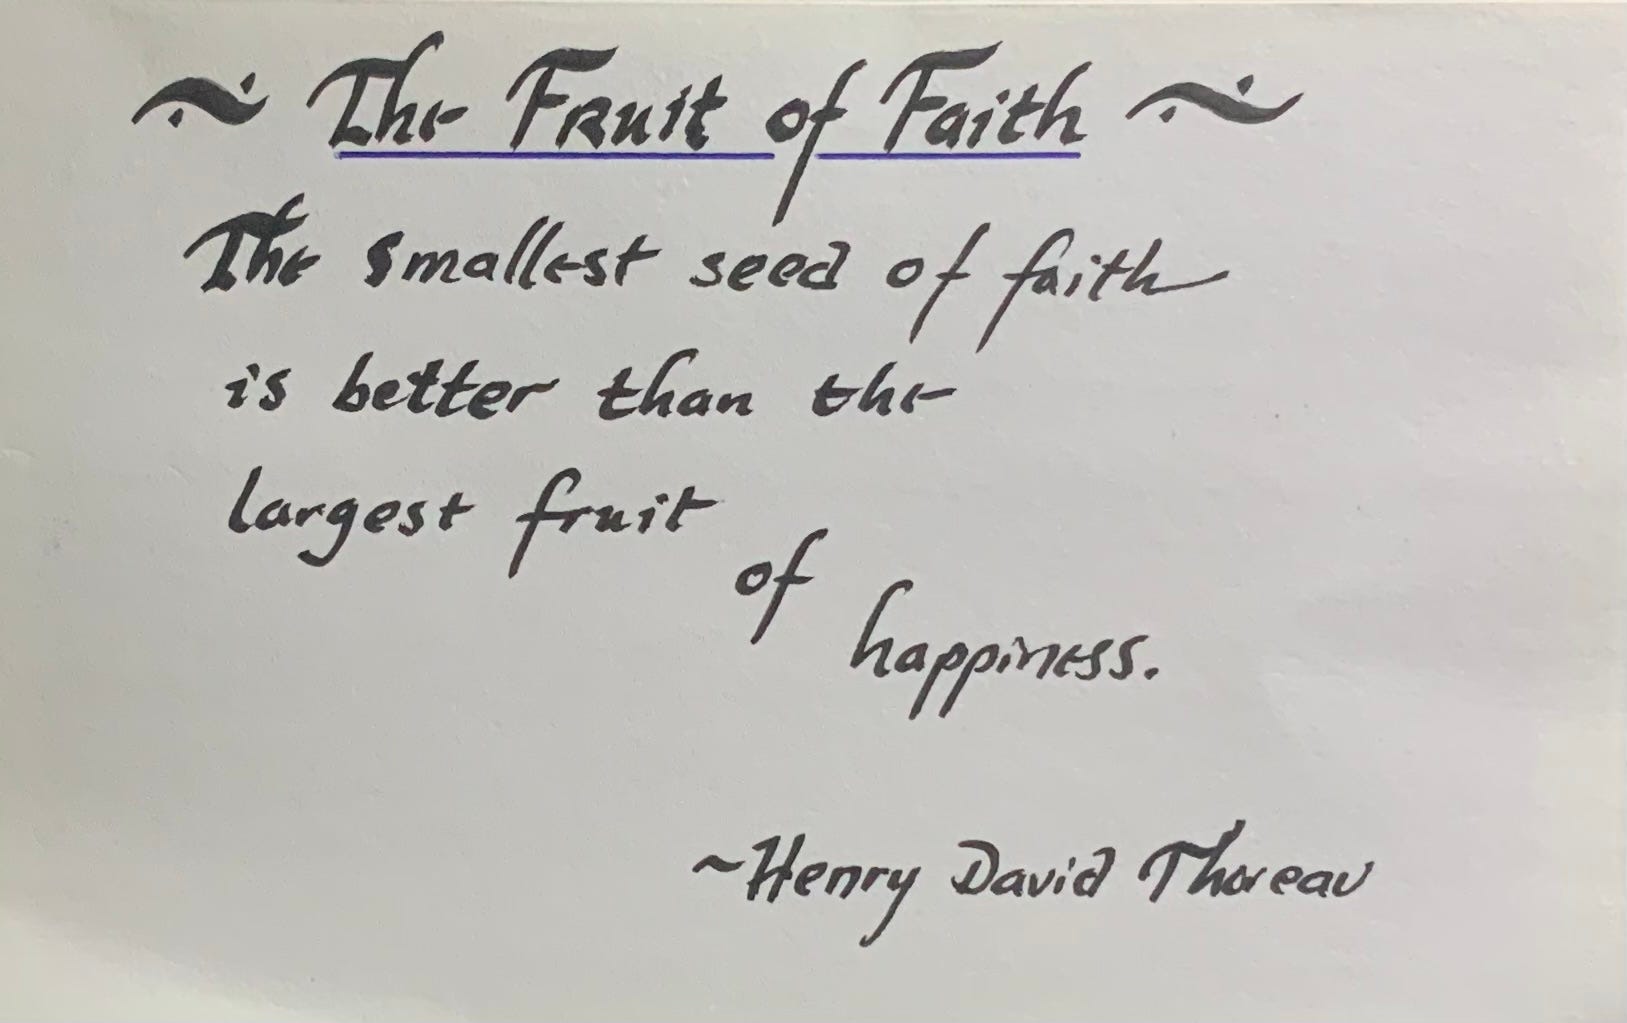 ~ The Fruit of Faith ~
The smallest seed of faith
is better than the
largest fruit
of
happiness.
~Henry David Thoreau